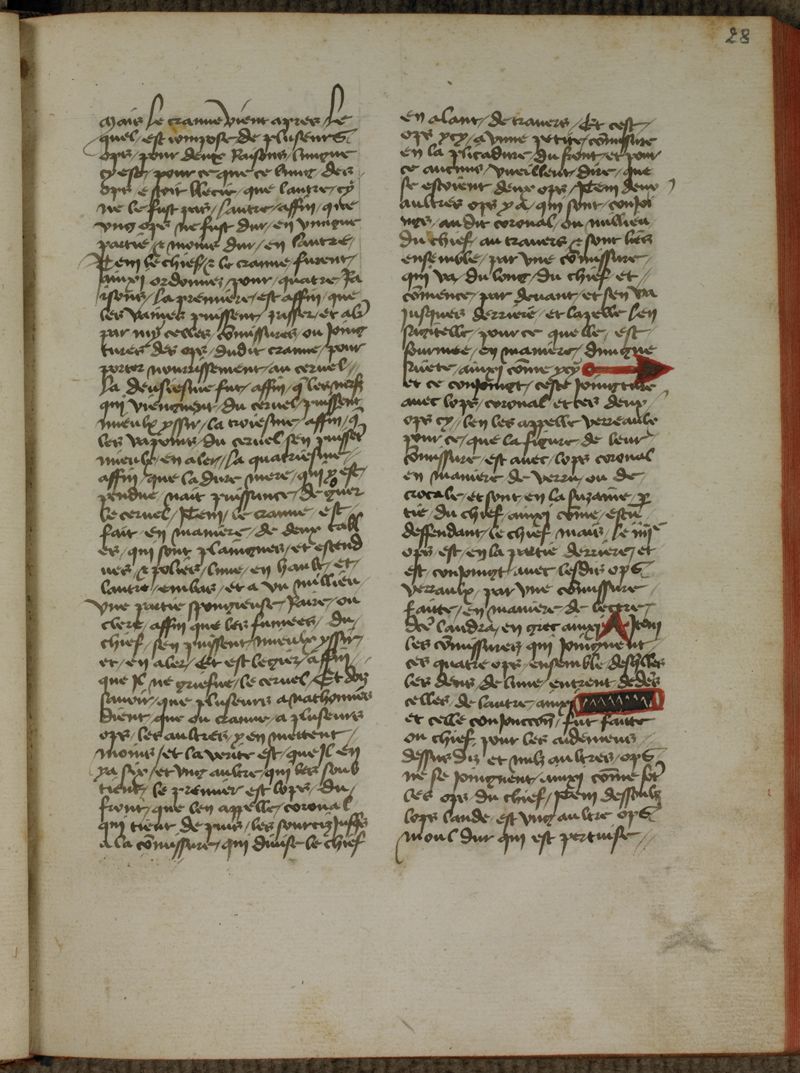 28
Mais le cranne vient apres / le
quel / est compose de pluseurs
ops / pour deux raisons / lungne
cy est / pour ce que ce lung des
ops estoit blecie / que lautre / cy
ne le fust pas / lautre / affin / que
ung ops ne fust dur / en ungne
partie / & moins dur / en lautre /
Item le chief / & le cranne / furent /
ainxi ordonnez / pour / quatre / Ra
isons / la premiere / est affin / que
les vaines puissent / passer / et
par my celles / cõmissures / ou Joing
tures des ops / dudit cranne / pour
porter nourrissement / au cervel /
La deusiesme fut / affin / q̃ les nerfz
qui viengnent / du cervel / puissent
mieulx yssir / la troiesme / affin / q̃
les vapeurs / du cervel / sen puissẽt
mieulx / en aler / la quatriesme /
affin / que la dure mere / qui y est
pendue / nait puissance / de
le cervel / Item / le cranne / est
fait / en maniere / de deux tabl
es / qui sont / plaingnes / et estend
ues / & polies / lune / en hault / et
lautre / embas / et a ou millieu
une partie spongieuse / Raire / ou
clere / affin que les fumees / du
chief / sen puissent / mieulx yssir /
et / en aler / Et est legier / affin /
que il ne griefue / le cervel / Et doiz
savoir / que pluseurs anathomies
dient / que ou cranne / a pluseurs
ops / les aultres / y en mettent
moins / et la verite est / que Il en
ya six / et ung aultre / qui les soub
tient / le premier est lops / du
front / que len appelle / coronal
qui tient de puis / les sourciz Jusqs
a la cõmissure / qui divise le chief
en alant / de travers / Et cest
ops ycy / a vune petite / cõmissure
en la plicadure / du front / et pour
ce aucuns / vueillent / dire / que
se estoient deux ops / Item deux
aultres ops y a / qui sont / conjoi
ngs / audit coronal / ou millieu
du chief / au travers & sont lies
ensemble / par vne cõmissure
qui va / du long / du chief et
cõmence / par devant / et sen va
jusques derriere / et lapelle len
sagitelle / pour ce quelle / est
fourmee / en maniere / dungne
saiete / ainxi cõme ycy
et ce conjoingt / ceste joingture
avec lops / coronal / et ces deux
ops cy / len les appelle verreaulx
pour ce / que la figure de leur
cõmissure / est avec / lops coronal
en maniere / de / ou de
et sont / en la p̱
tie / du chief / ainxi cõme /
deffendant / le chief / mais / le iiiie
ops / est / en la partie derriere / et
est / conjoingt / avec lesdis ops
verraulx / par vne cõmissure
faitte / en maniere / de lectre /
dẽe landra / en grec ainxi Λ Item
les cõmissures / qui joingnent
ces quatre ops / ensemble / desquelles
les dens / de lune / entrent dedẽs
celles / de lautre / ainxi
et celle conjonccion / fut faitte
ou chief / pour les
dessus diz / et nulz aultres / ops
ne se joingnent / ainxi cõme sõt
les ops / du chief / Item dessoubz
lops lande / est ung aultre ops
moul dur / qui est pertuise //